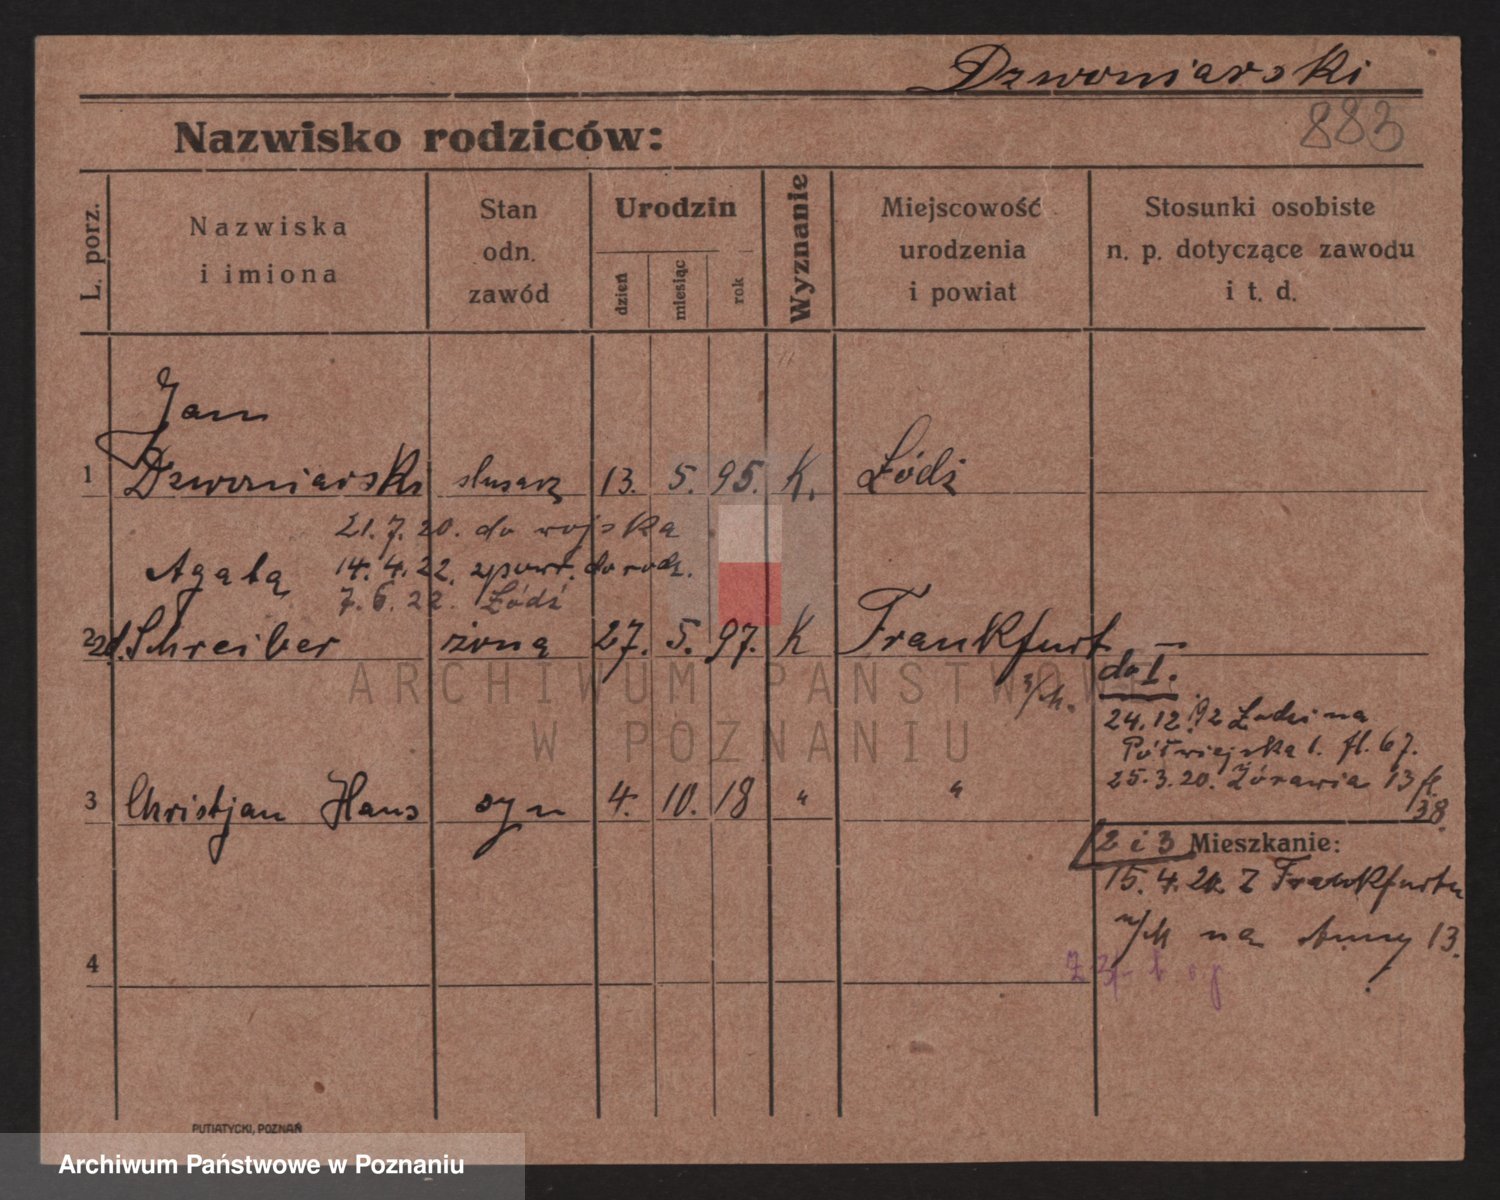 Dzwoniarski
883
Nazwisko rodziców:
L. porz.
Nazwiska
i imiona
Stan
odn.
zawód
Urodzin
dzień
miesiąc
rok
Wyznanie
Miejscowość
urodzenia
i powiat
Stosunki osobiste
n. p. dotyczące zawodu
i t. d.
Jan
1 Dzwoniarski ślusarz 13. 5. 95. K. Łódź
21.7.20. do wojska
Agata 14.4.22. zpowr. do rodz.
7.6.22. Łódź
2 Schreiber żona 27. 5. 97. K Frankfurt
n/M.
do 1.
24.12. Łodzi na
Półwiejska 1. fl. 67.
25.3.20. Żórawia 13 fl.
38.
3 Christjan Hans syn 4. 10. 18 " "
2 i 3 Mieszkanie:
15.4. z Frankfurtu
n/M na 13.
4
PUTIATYCKI, POZNAŃ
ARCHIWUM PAŃSTWOWE
W POZNANIU
Archiwum Państwowe w Poznaniu